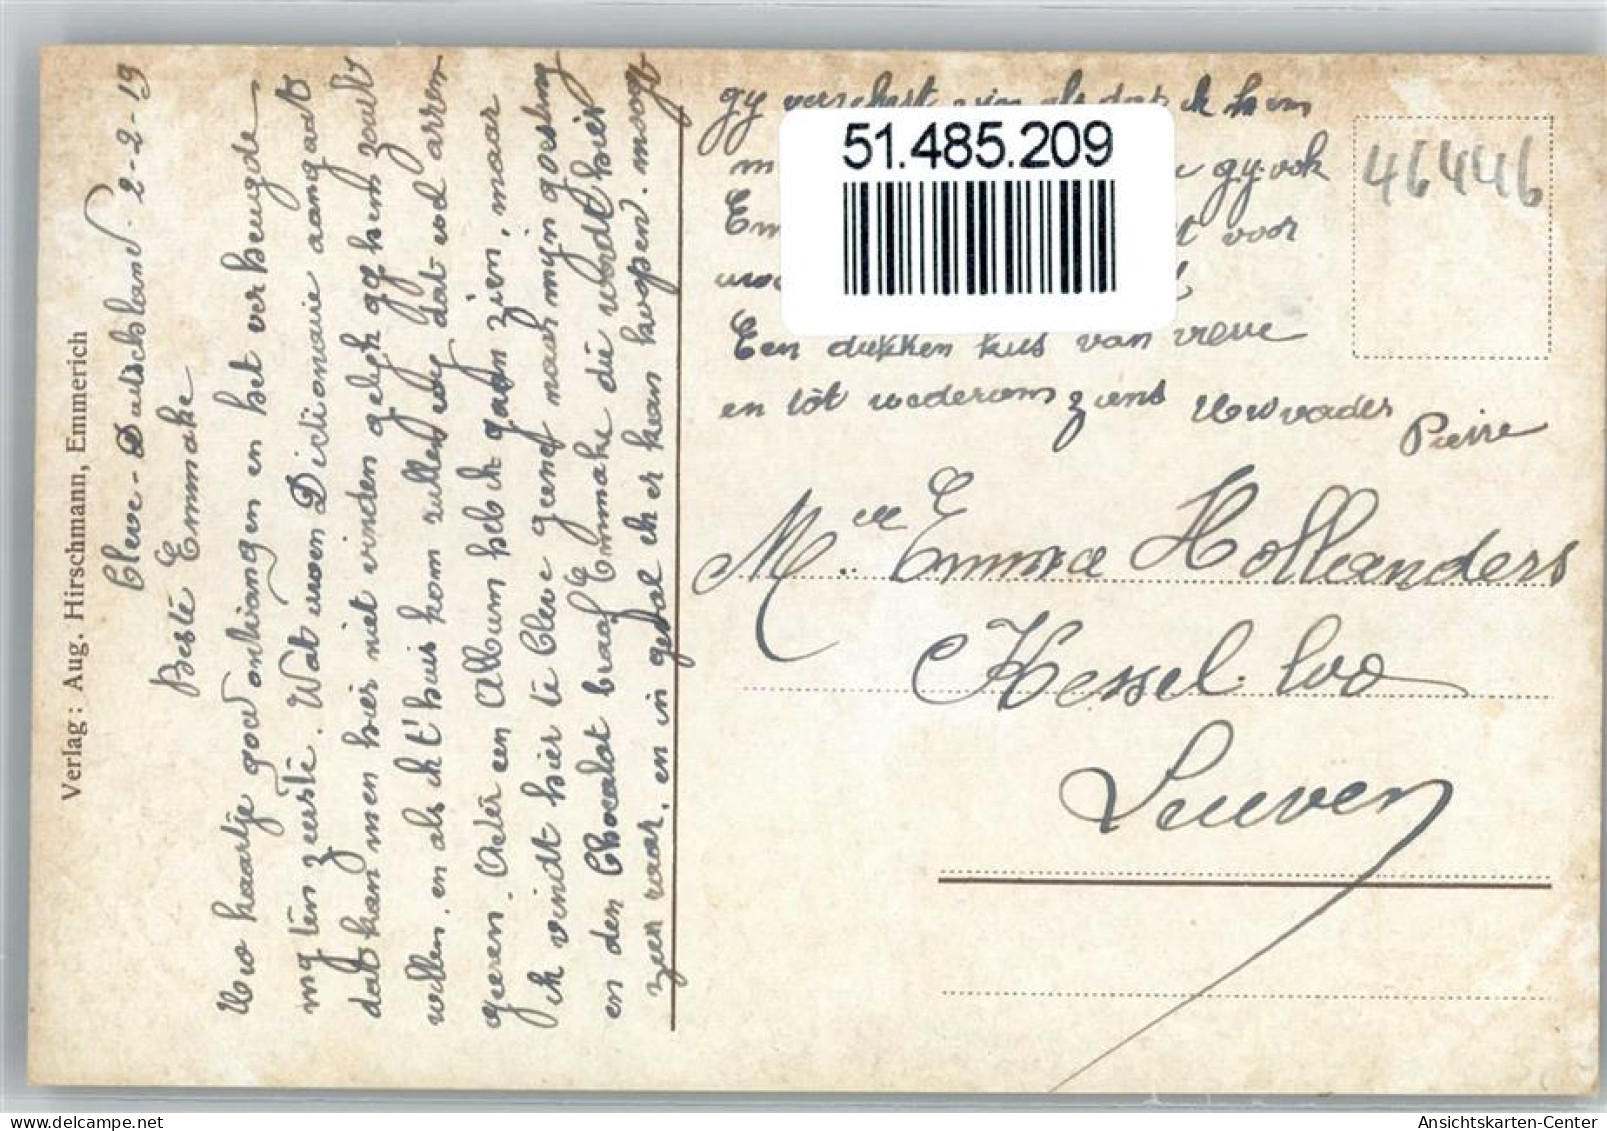 Verlag: Aug. Hirschmann, Emmerich
Cleve - Duitschland. 2-2-19
Beste Emmake
Uw kaartje goed ontvangen en het verheugde
my ten zeerste. Wat uwen Dictionaire aangaat
dat kan men hier niet vinden gelyk gy hem zoudt
willen. en als ik t'huis kom zullen wy dat wel
geren. een Album heb ik gaan zien, maar
ik vindt hier te Cleve geene naar myn
en den Chocalat braaf Emmake die wordt hier
zeer raar. en in geval ik er kan koopen.
gy verschert als dat ik hem
gy ook
voor
Een dikken kus van
en tot wederom ziens Uw vader
Pierre
51.485.209
46446
Melle Emma Hollanders
Kessel. Loo
Leuven
Ansichtskarten-Center